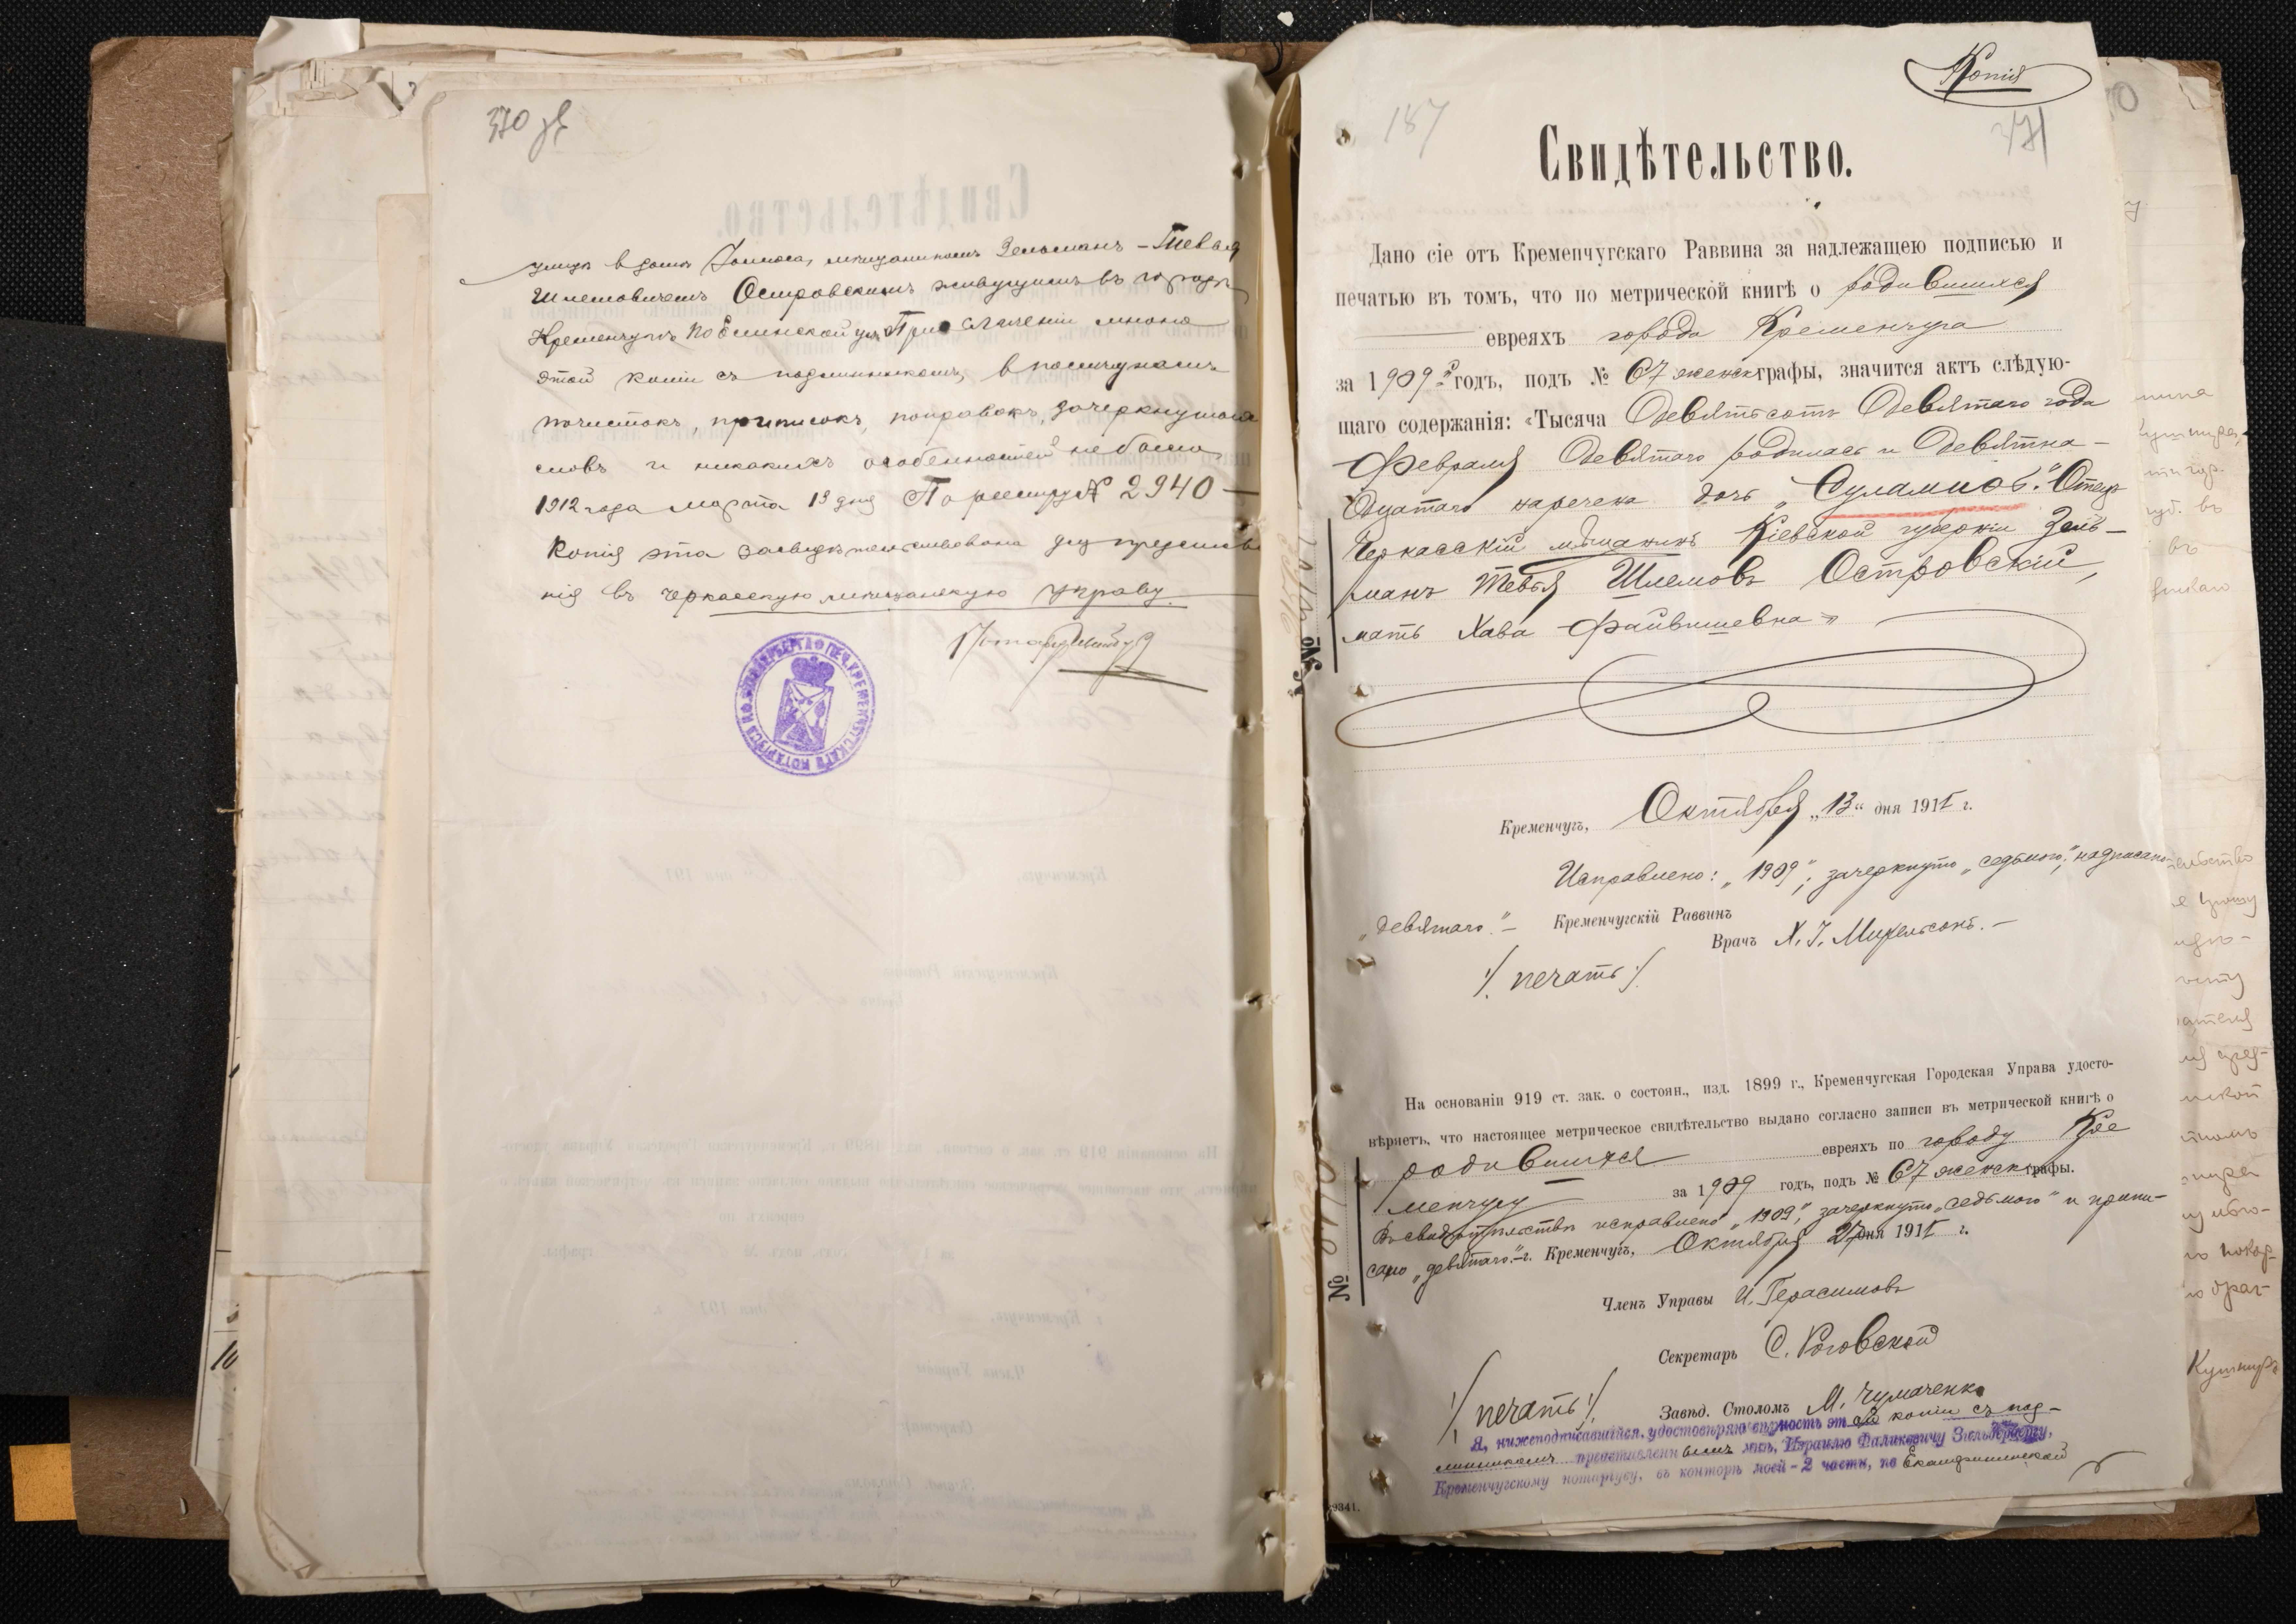 370 зв
улица в домѣ мѣщаниномъ Зельманъ-Тевья
Шлемовичемъ Островскимъ живущимъ въ городѣ
Кременчугѣ по ул. При сличеніи мною
этой копіи съ подлинникомъ, в помянутомъ
почистокъ, приписокъ, поправокъ, зачеркнутыхъ
словъ и никакихъ особенностей не было
1912 года Марта 13 дня По реестру № 2940 —
Копія эта засвидѣтельствована для представле
нія въ Черкасскую мѣщанскую управу.
Нотаріусъ
Копія
187
371
Свидѣтельство.
Дано сіе отъ Кременчугскаго Раввина за надлежащею подписью и
печатью въ томъ, что по метрической книгѣ о родившихся
евреяхъ города Кременчуга
за 1909 й годъ, подъ № 67 женск графы, значится актъ слѣдую-
щаго содержанія: «Тысяча девятьсотъ девятаго года
Февраля девятаго родилась и девятна-
дцатаго наречена дочь „Суламиѳь." Отецъ
Черкасскій мѣщанинъ Кіевской губерніи Зель-
манъ Тевья Шлемовъ Островскій,
мать Хава Файвишевна»
Кременчугъ, Октября „13" дня 1911 г.
Исправлено: „1909"; зачеркнуто „седьмого", надписано
„девятаго". — Кременчугскій Раввинъ
Врачъ Х. І. Михельсонъ. —
/: печать :/
На основаніи 919 ст. зак. о состоян., изд. 1899 г., Кременчугская Городская Управа удосто-
вѣряетъ, что настоящее метрическое свидѣтельство выдано согласно записи въ метрической книгѣ о
родившихся евреяхъ по городу Кре
менчугу за 1909 годъ, подъ № 67 женск графы.
Въ свидѣтельствѣ исправлено „1909", зачеркнуто „седьмого" и припи-
сано „девятаго". — г. Кременчугъ, Октября 21 дня 1911 г.
Членъ Управы И. Герасимовъ
Секретарь С. Роговской
/: печать :/ Завѣд. Столомъ М. Чумаченко
Я, нижеподписавшійся, удостовѣряю вѣрность этой копіи съ под-
линникомъ представленнымъ мнѣ, Израилю Фаликовичу Зильбербергу,
Кременчугскому нотаріусу, въ конторѣ моей - 2 части, по Екатерининской
9341.